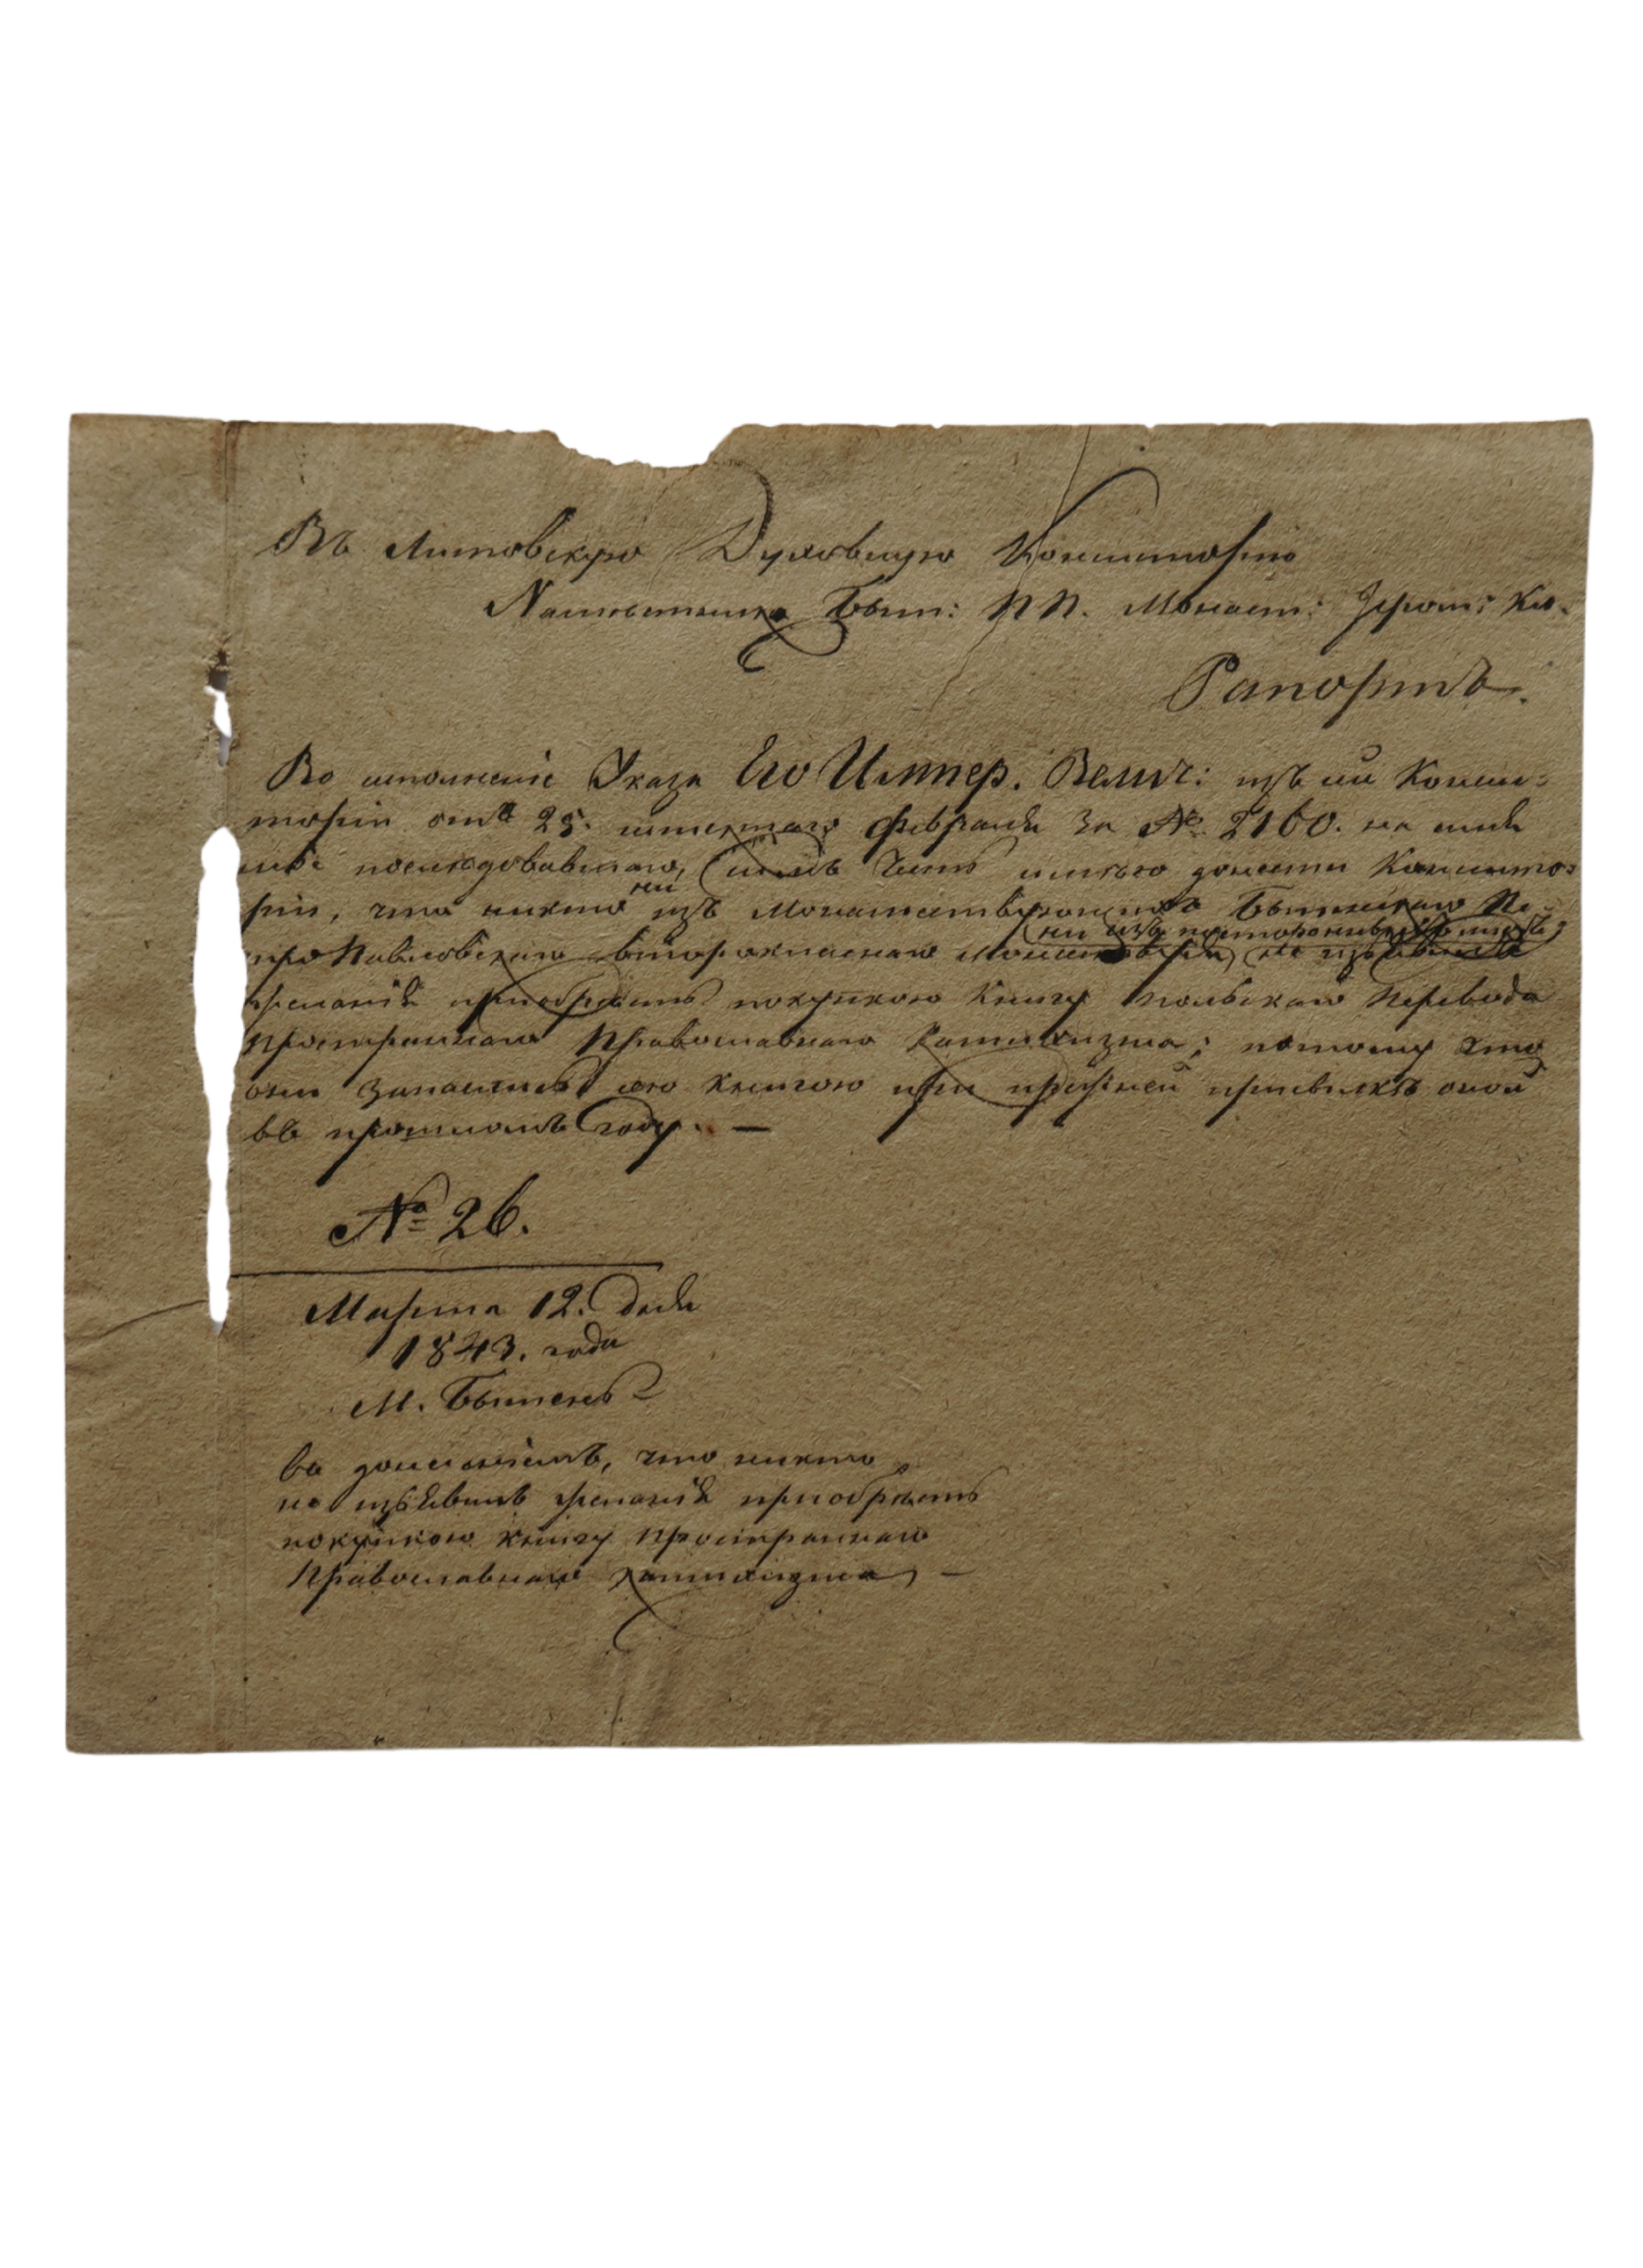 Въ Литовскую Духовную Консисторію
Намѣстника Быт: ПП. Монаст: Іером: Ки-
Рапортъ.
Во исполненіе Указа Его Импер. Велич: изъ сей Консис-
торіи отъ 25. истекшаго февраля за № 2160. на имя
мое послѣдовавшаго, симъ честь имѣю донести Консисто-
ріи, что никто ни изъ Монашествующихъ Бытенскаго Пе-
ни изъ постороннихъ лицъ,
троПавловскаго второкласнаго Монастыря, не изъявилъ
желанія приобрѣсть покупкою Книгу польскаго перевода
Пространнаго Православнаго Катихизма; потому что
они запаслись сею книгою при прежней присылкѣ оной
въ прошломъ году. —
№ 26.
Марта 12. дня
1843. года
М. Бытень
съ донесеніемъ, что никто
не изъявилъ желанія приобрѣсть
покупкою книгу Пространнаго
Православнаго катихизма, —